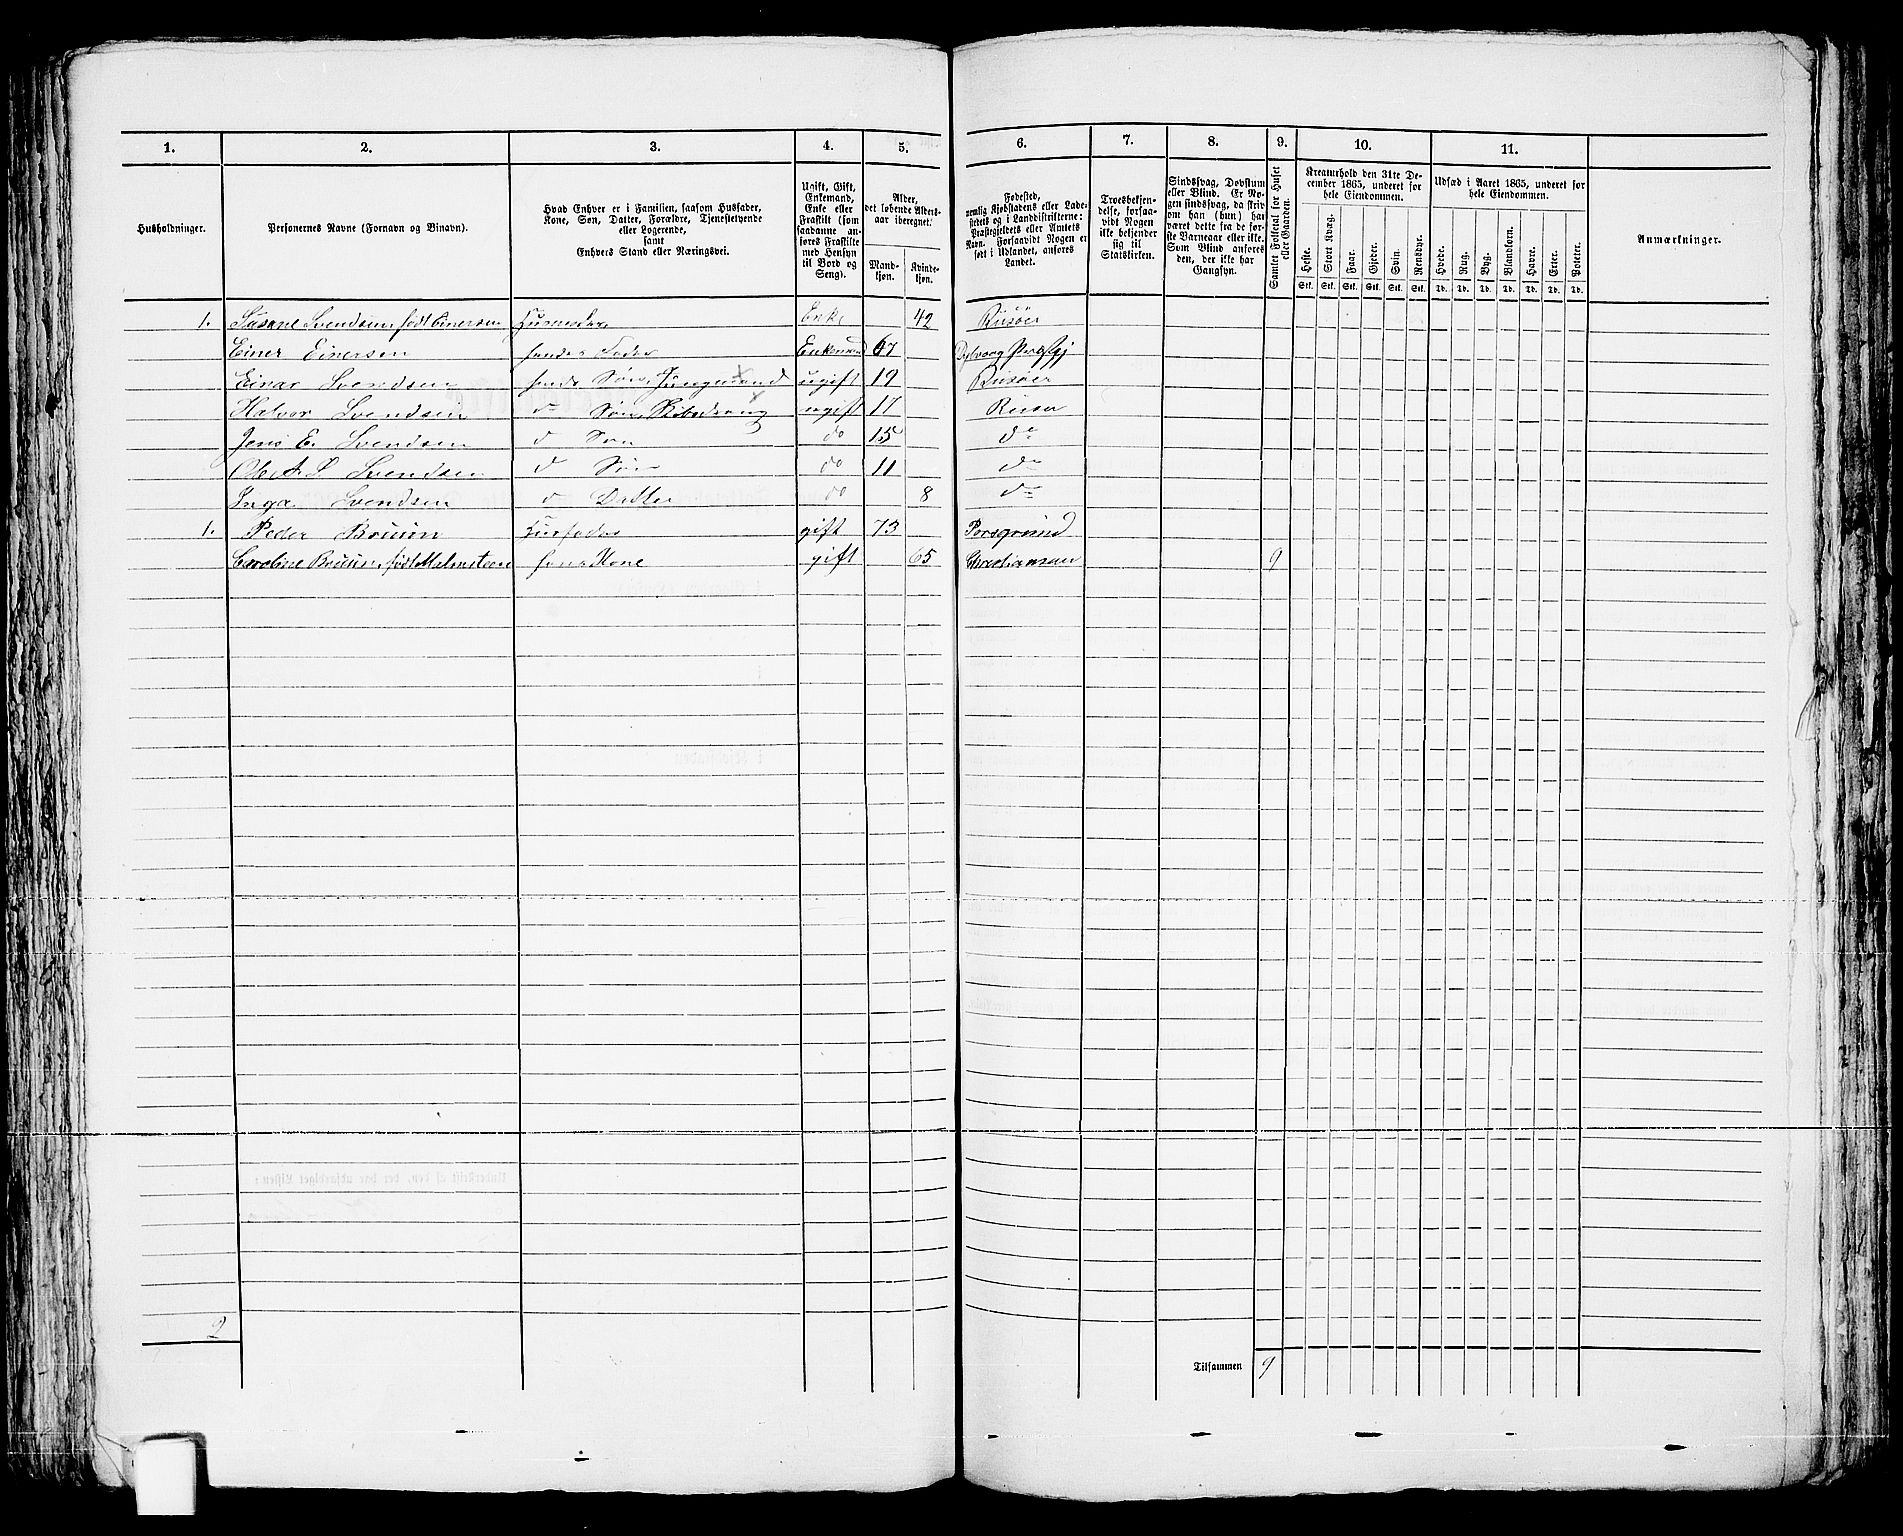 1. 2. 3. 4. 5. 6. 7. 8. 9. 10. 11.
Husholdninger.
Personernes Navne (Fornavn og Binavn).
Hvad Enhver er i Familien, saasom Husfader,
Kone, Søn, Datter, Forældre, Tjenestetyende
eller Logerende,
samt
Enhvers Stand eller Næringsvei.
Ugift, Gift,
Enkemand,
Enke eller
Fraskilt (som
saadanne an-
føres Fraskilte
med Hensyn
til Bord og
Seng).
Alder,
det løbende Alders-
aar iberegnet.
Mand-
kjøn.
Kvinde-
kjøn.
Fødested,
nemlig Kjøbstadens eller Lade-
stedets og i Landdistrikterne:
Præstegjeldets eller Amtets
Navn. Forsaavidt Nogen er
født i Udlandet, anføres
Landet.
Troesbekjen-
delse, forsaa-
vidt Nogen
ikke bekjender
sig til
Statskirken.
Sindssvag, Døvstum
eller Blind. Er No-
gen sindssvag, da skriv
om han (hun) har
været dette fra de før-
ste Barneaar eller ikke.
Som Blind anføres
den, der ikke har
Gangsyn.
Samlet Folketal for Huset
eller Gaarden.
Kreaturhold den 31te De-
cember 1865, underet for
hele Eiendommen.
Heste. Stort Kvæg. Faar. Gjeder. Svin. Rensdyr.
Stk. Stk. Stk. Stk. Stk. Stk.
Udsæd i Aaret 1865, underet for
hele Eiendommen.
Hvede. Rug. Byg. Blandkorn. Havre. Erter. Poteter.
Td. Td. Td. Td. Td. Td. Td.
Anmærkninger.
1. Susane Svendsen, født Einersen Enke 42 Risøer
Einer Einersen hendes Fader Enkemand 67 Dybvaag Præstgj
Einar Svendsen hends Søn, Jungmand ugift 19 Risøer
Halvor Svendsen d Søn ugift 17 Risøer
Jens E. Svendsen d Søn do 15 do
Ole A. S. Svendsen d Søn do 11 do
Inga Svendsen d Datter do 8 do
1. Peder Bruun Husfader gift 73 Porsgrund
Caroline Bruun, født Malmsteen hans Kone gift 65 Christiansan 9
2
Tilsammen 9